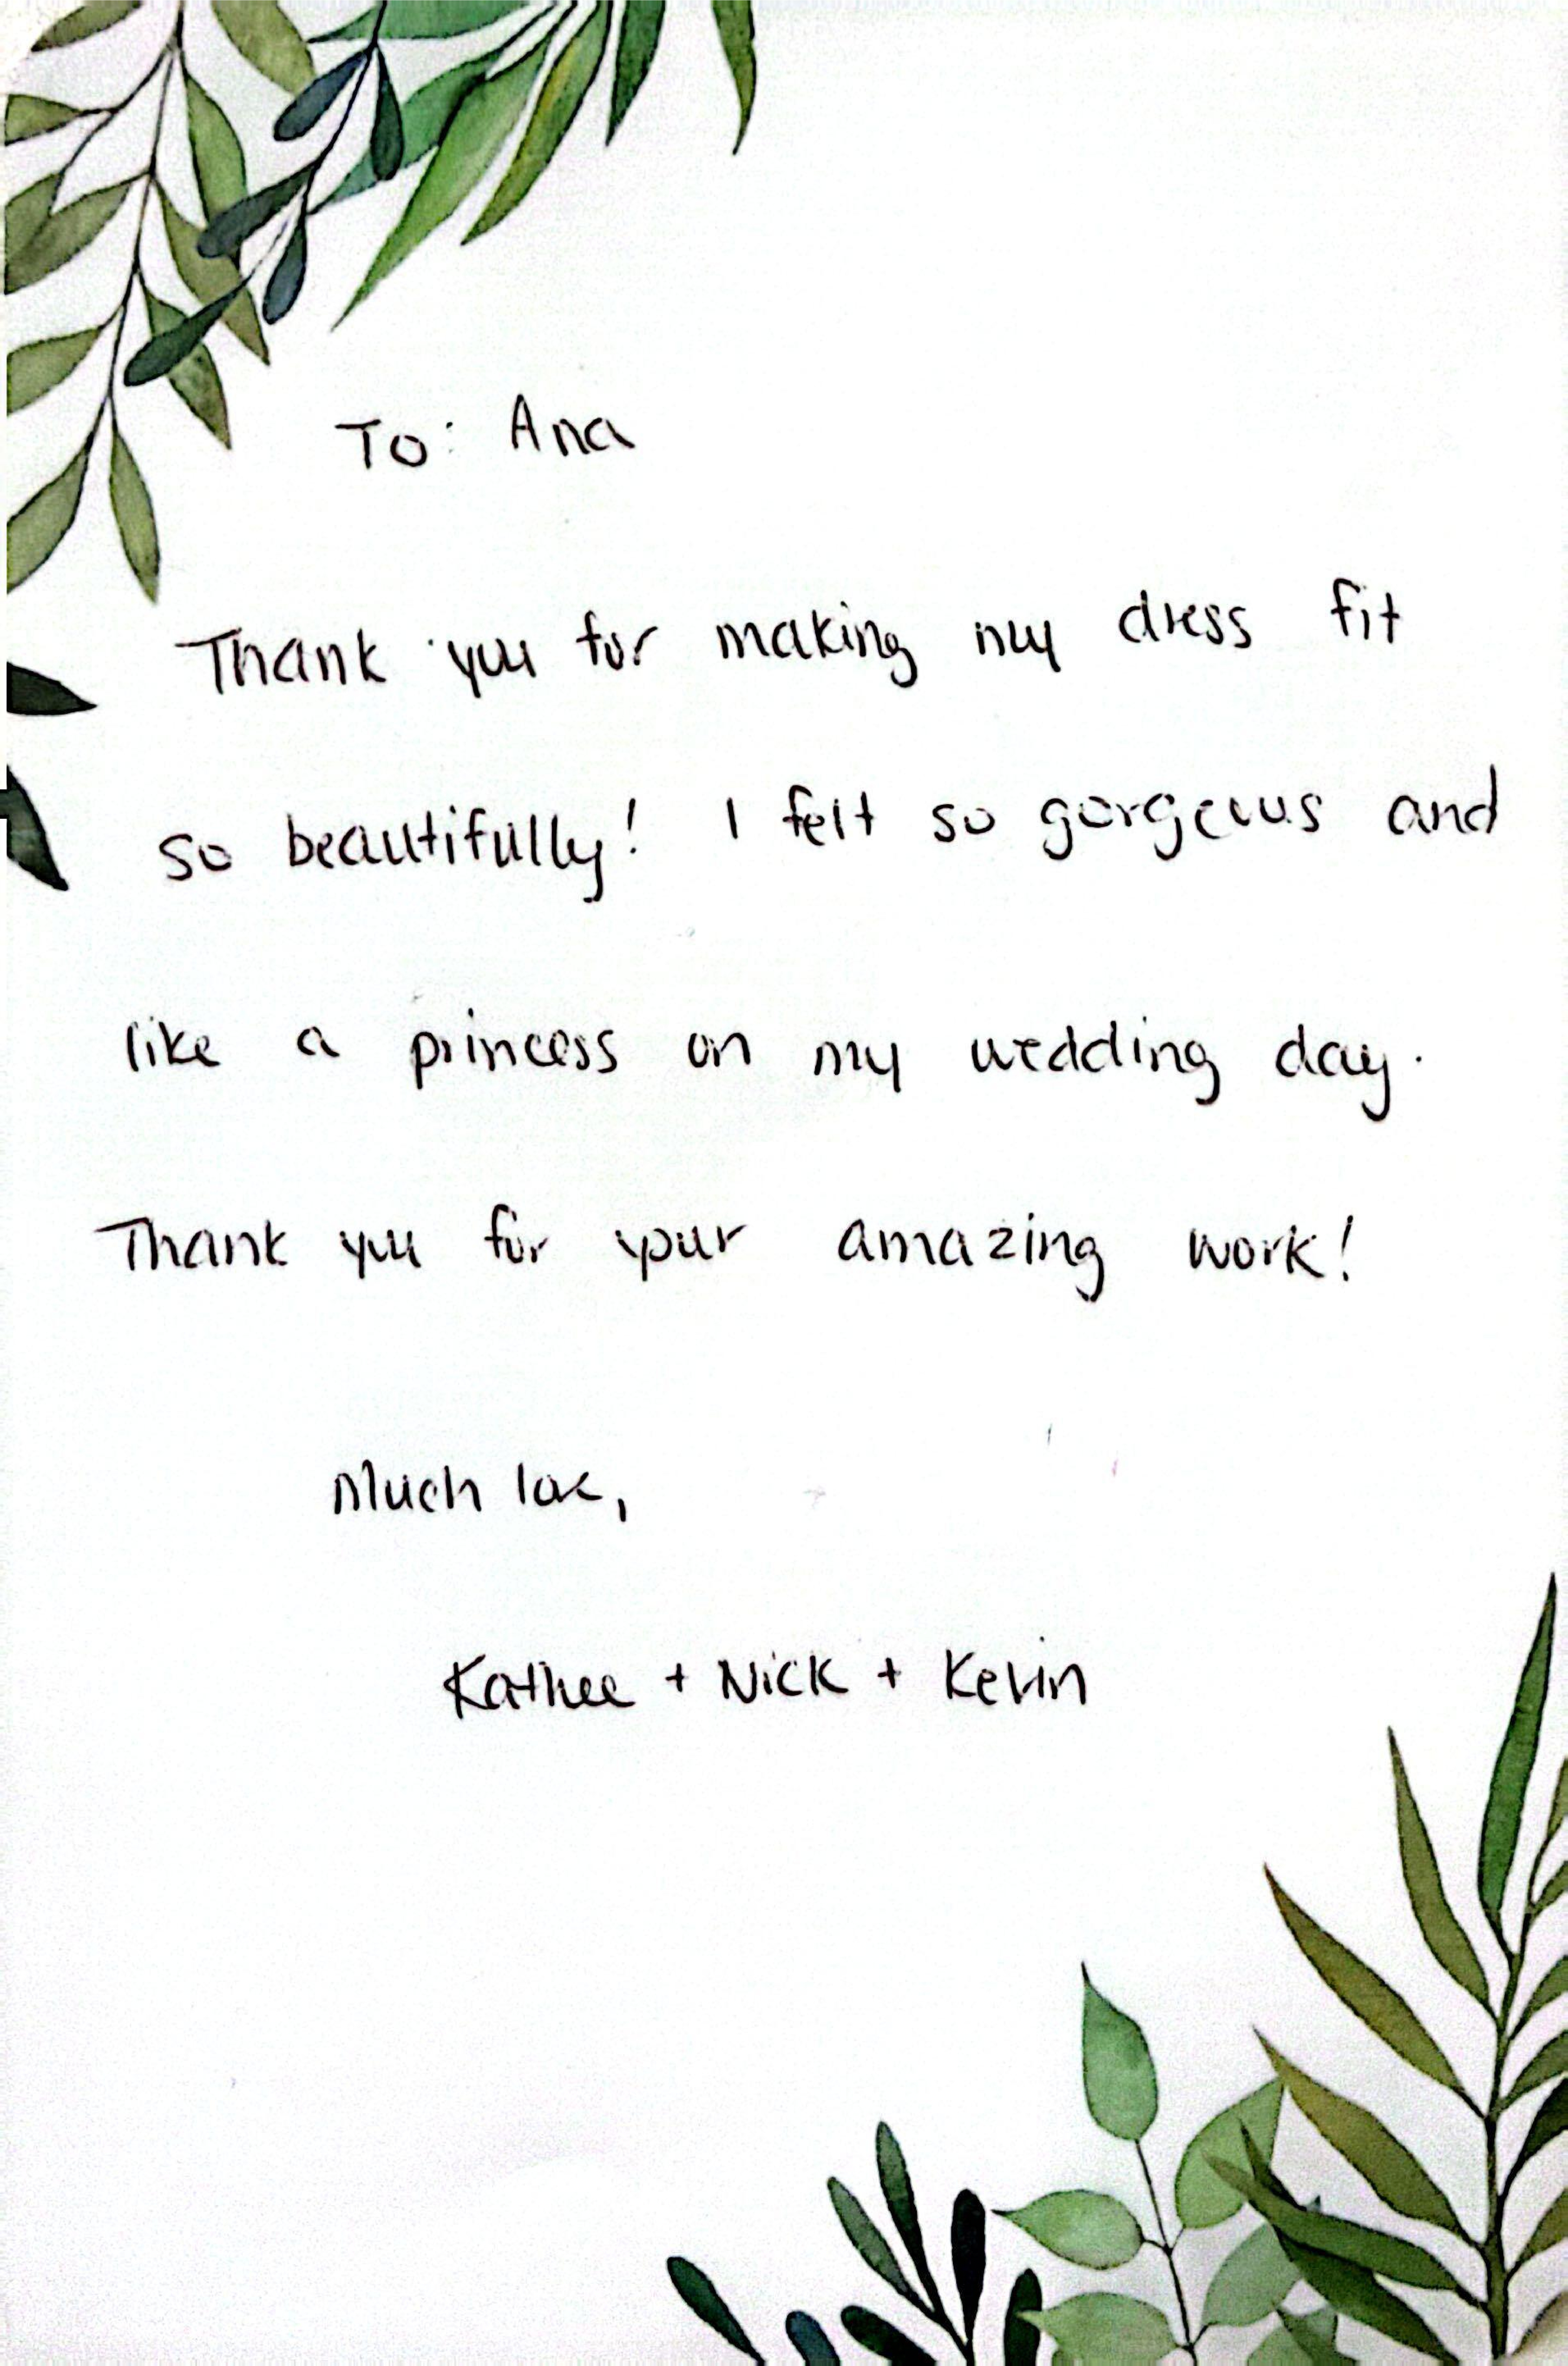 To: Ana
Thank you for making my dress fit
so beautifully! I felt so gorgeous and
like a princess on my wedding day.
Thank you for your amazing work!
Much love,
Kathee + Nick + Kevin